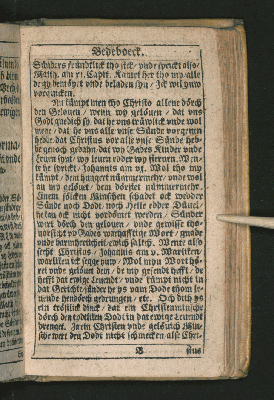 Bedeboeck.
Sünders fründtlick tho sick, vnde sprickt also,
Matth. am xi. Capit. Kamet her tho my alle
de gy bemöyet vnde beladen syn, Ick wil yuw
vorquicken.
Nu kümpt men tho Christo allene dörch
den Gelouen, wenn wy gelöuen, dat vns
Godt gnedich sy, dat he vns trüwlick vnde wol
mene, dat he vns alle vnse Sünde vorgeuen
hebbe, dat Christus vor alle vnse Sünde heb-
be genoch gedahn, dat wy Gades Kinder vnde
Eruen synt, wy leuen edder wy steruen. Wen-
te he sprickt, Johannis am vj. Wol tho my
kümpt, den hungert nümmermehr, vnde wol
an my gelöuet, dem dörstet nümmermehr.
Einem sölcken Minschen schadet ock wedder
Sünde noch Dodt, noch Helle edder Düuel,
he kan ock nicht vordömet werden, Sünder
wert dörch den gelouen, vnde gewisse tho-
vorsicht vp Gades warhafftige Wort, gnade
vnde barmherticheit, ewich salich. Wente also
secht Christus, Johannis am v. Warliken,
warliken ick segge yuw, Wol myn Wort hö-
ret vnde gelöuet dem, de my gesendt hefft, de
hefft dat ewige Leuendt, vnde kümpt nicht in
dat Gerichte, sünder he ys vam Dode thom le-
uende hendörch gedrungen, etc. Och dyth ys
ein tröstlick dinck, dat ein Christenminsche
dörch den Dodt in dat ewige Leuendt
drenget. Ja ein Christen vnde gelöuich Min-
sche wert den Dodt nicht schmecken, alse Chri-
stus